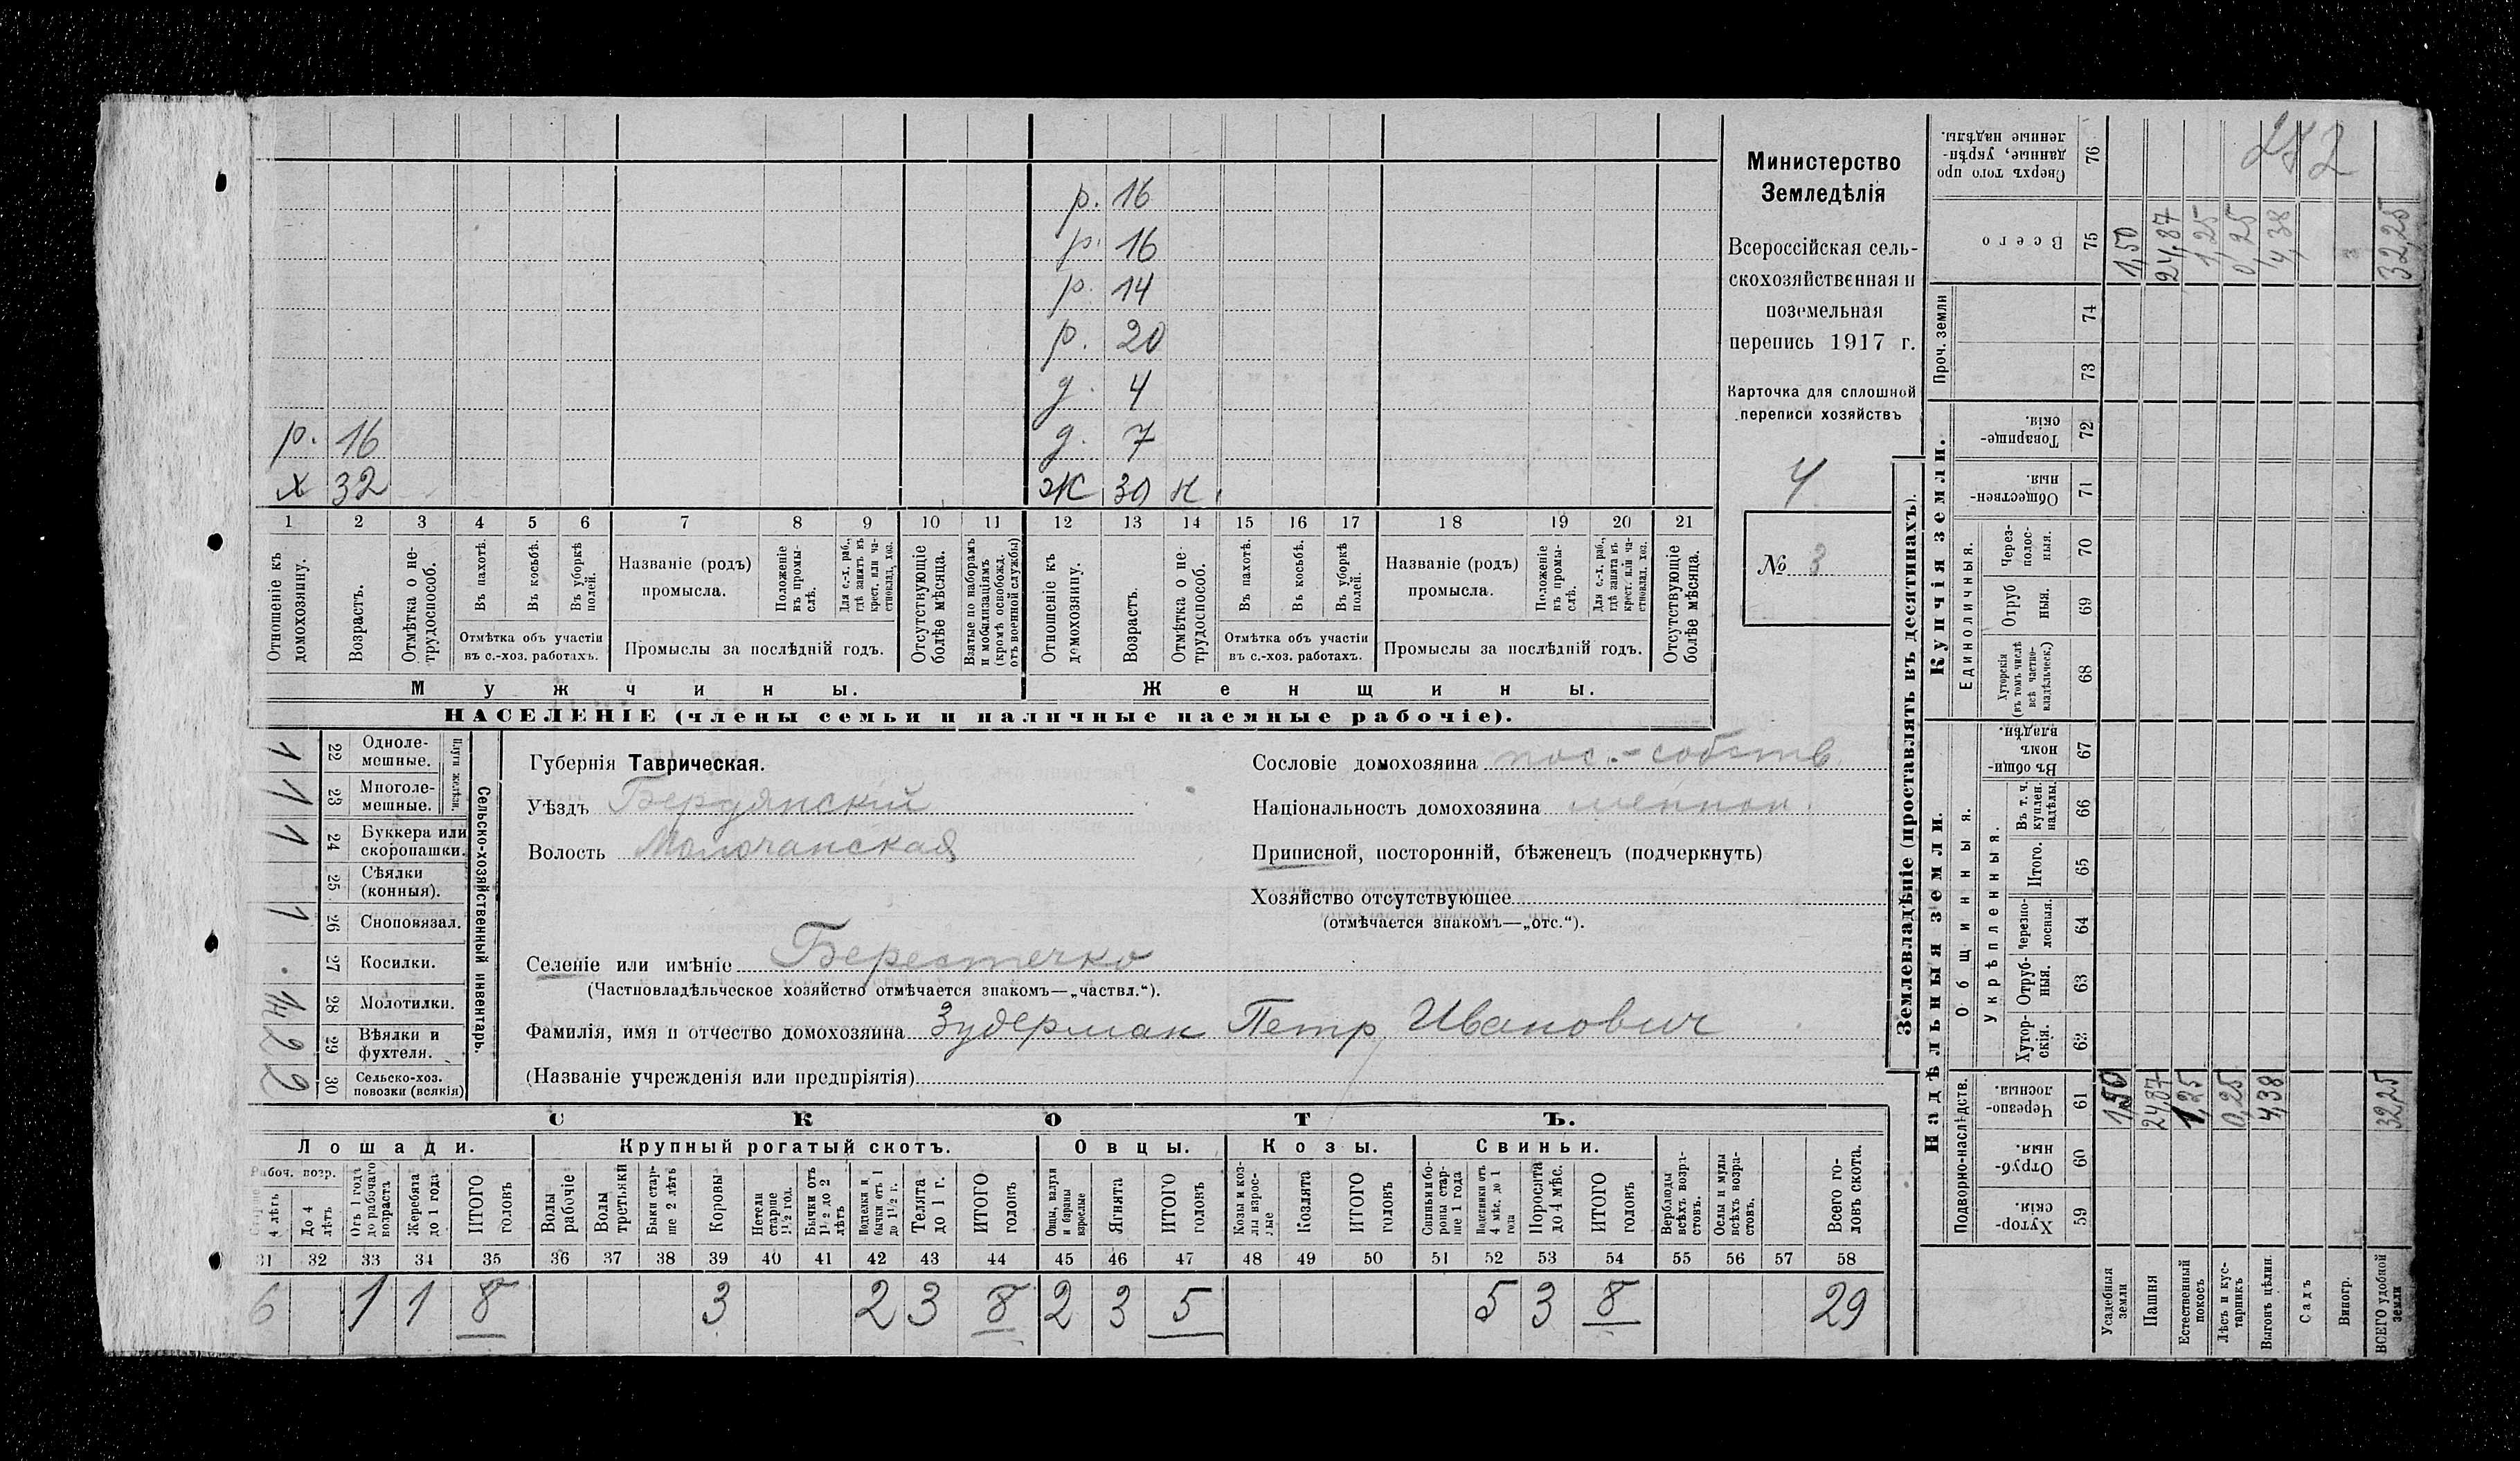 р. 16
р. 16
р. 14
р. 20
д. 4
р. 16 д. 7
х 32 ж 30 н
1 2 3 4 5 6 7 8 9 10 11 12 13 14 15 16 17 18 19 20 21
Отношеніе къ домохозяину.
Возрастъ.
Отмѣтка о не-трудоспособ.
Въ пахотѣ.
Въ косьбѣ.
Въ уборкѣ полей.
Отмѣтка объ участіи
въ с.-хоз. работахъ.
Названіе (родъ)
промысла.
Положеніе въ промы-слѣ.
Для с.-х. раб., гдѣ занятъ въ крест. или ча-стновлад. хоз.
Промыслы за послѣдній годъ.
Отсутствующіе болѣе мѣсяца.
Взятые по наборамъ и мобилизаціямъ (кромѣ освобожд. отъ военной службы)
Отношеніе къ домохозяину.
Возрастъ.
Отмѣтка о не-трудоспособ.
Въ пахотѣ.
Въ косьбѣ.
Въ уборкѣ полей.
Отмѣтка объ участіи
въ с.-хоз. работахъ.
Названіе (родъ)
промысла.
Положеніе въ промы-слѣ.
Для с.-х. раб., гдѣ занята въ крест. или ча-стновлад. хоз.
Промыслы за послѣдній годъ.
Отсутствующіе болѣе мѣсяца.
Мужчины. Женщины.
НАСЕЛЕНІЕ (члены семьи и наличные наемные рабочіе).
Министерство
Земледѣлія
Всероссійская сель-
скохозяйственная и
поземельная
перепись 1917 г.
Карточка для сплошной
переписи хозяйствъ
4
№ 3
Сельско-хозяйственный инвентарь.
Плуги желѣзн.
22 Одноле-мешные. 1
23 Многоле-мешные. 1
24 Буккера или скоропашки. 1
25 Сѣялки (конныя).
26 Сноповязал. 1
27 Косилки.
28 Молотилки. 1/4
29 Вѣялки и фухтеля. 2
30 Сельско-хоз. повозки (всякія) 2
Губернія Таврическая.
Уѣздъ Бердянскій
Волость Молочанская
Селеніе или имѣніе Берестечко
(Частновладѣльческое хозяйство отмѣчается знакомъ—„частвл.“).
Фамилія, имя и отчество домохозяина Зудерман Петр Иванович
(Названіе учрежденія или предпріятія)
Сословіе домохозяина пос.-собств.
Національность домохозяина меннон.
Приписной, посторонній, бѣженецъ (подчеркнуть)
Хозяйство отсутствующее
(отмѣчается знакомъ—„отс.“).
СКОТЪ.
Лошади. Крупный рогатый скотъ. Овцы. Козы. Свиньи.
Рабоч. возр.
4 лѣтъ
До 4 лѣтъ
Отъ 1 года до рабочаго возраста
Жеребята до 1 года
ИТОГО головъ
Волы рабочіе
Волы третьяки
Быки стар-ше 2 лѣтъ
Коровы
Нетели старше 1½ год.
Бычки отъ 1½ до 2 лѣтъ
бычки отъ 1 до 1½ г.
Телята до 1 г.
ИТОГО головъ
Овцы, валухи и бараны взрослые
Ягнята
ИТОГО головъ
Козы и коз-лы взрос-лые
Козлята
ИТОГО головъ
Свиньи и бо-ровы стар-ше 1 года
Подсвинки отъ 4 мѣс. до 1 года
Поросята до 4 мѣс.
ИТОГО головъ
Верблюды всѣхъ возра-стовъ.
Ослы и мулы всѣхъ возра-стовъ.
Всего го-ловъ скота.
31 32 33 34 35 36 37 38 39 40 41 42 43 44 45 46 47 48 49 50 51 52 53 54 55 56 57 58
6 1 1 8 3 2 3 8 2 3 5 5 3 8 29
Землевладѣніе (проставлять въ десятинахъ).
Надѣльныя земли.
Купчія земли.
Проч. земли
Подворно-наслѣдств.
Общинныя.
Укрѣпленныя.
Единоличныя.
Сверхъ того про данные, укрѣп-ленные надѣлы. 76
Всего 75
74
73
Товарище-скія. 72
Обществен-ныя. 71
Через-полос-ныя. 70
Отруб ныя. 69
Хуторскія (въ томъ числѣ всѣ частно-владѣльческ.) 68
Въ общи-номъ владѣн. 67
Въ т. ч. куплен. надѣлы. 66
Итого. 65
Черезпо-лосныя. 64
Отруб-ныя. 63
Хутор-скія. 62
Черезпо-лосныя. 61
Отруб-ныя. 60
Хутор-скія. 59
Усадебныя земли 1,50 1,50
Пашня 24,87 24,87
Естественный покосъ 1,25 1,25
Лѣсъ и кус-тарникъ 0,25 0,25
Выгонъ цѣлин. 4,38 4,38
Садъ
Виногр.
ВСЕГО удобной земли 32,25 32,25